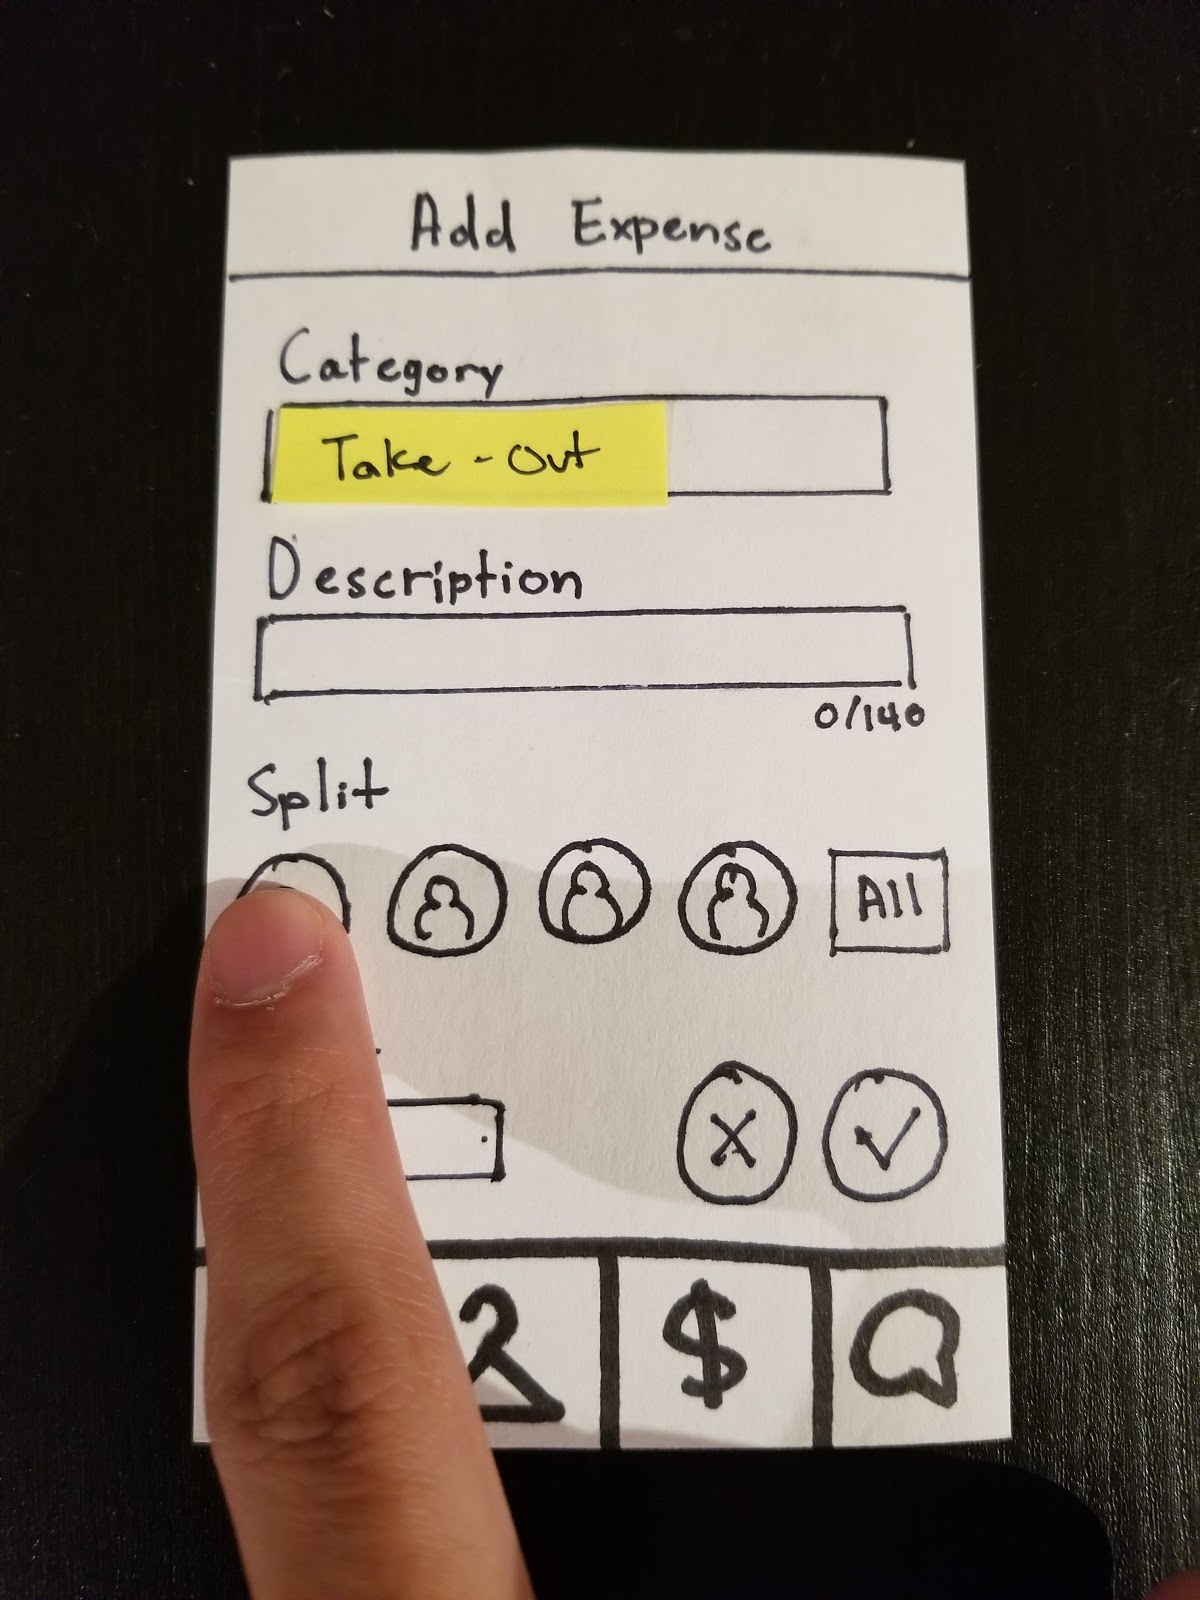 Add Expense
Category
Take-Out
Description
0/140
Split
All
$